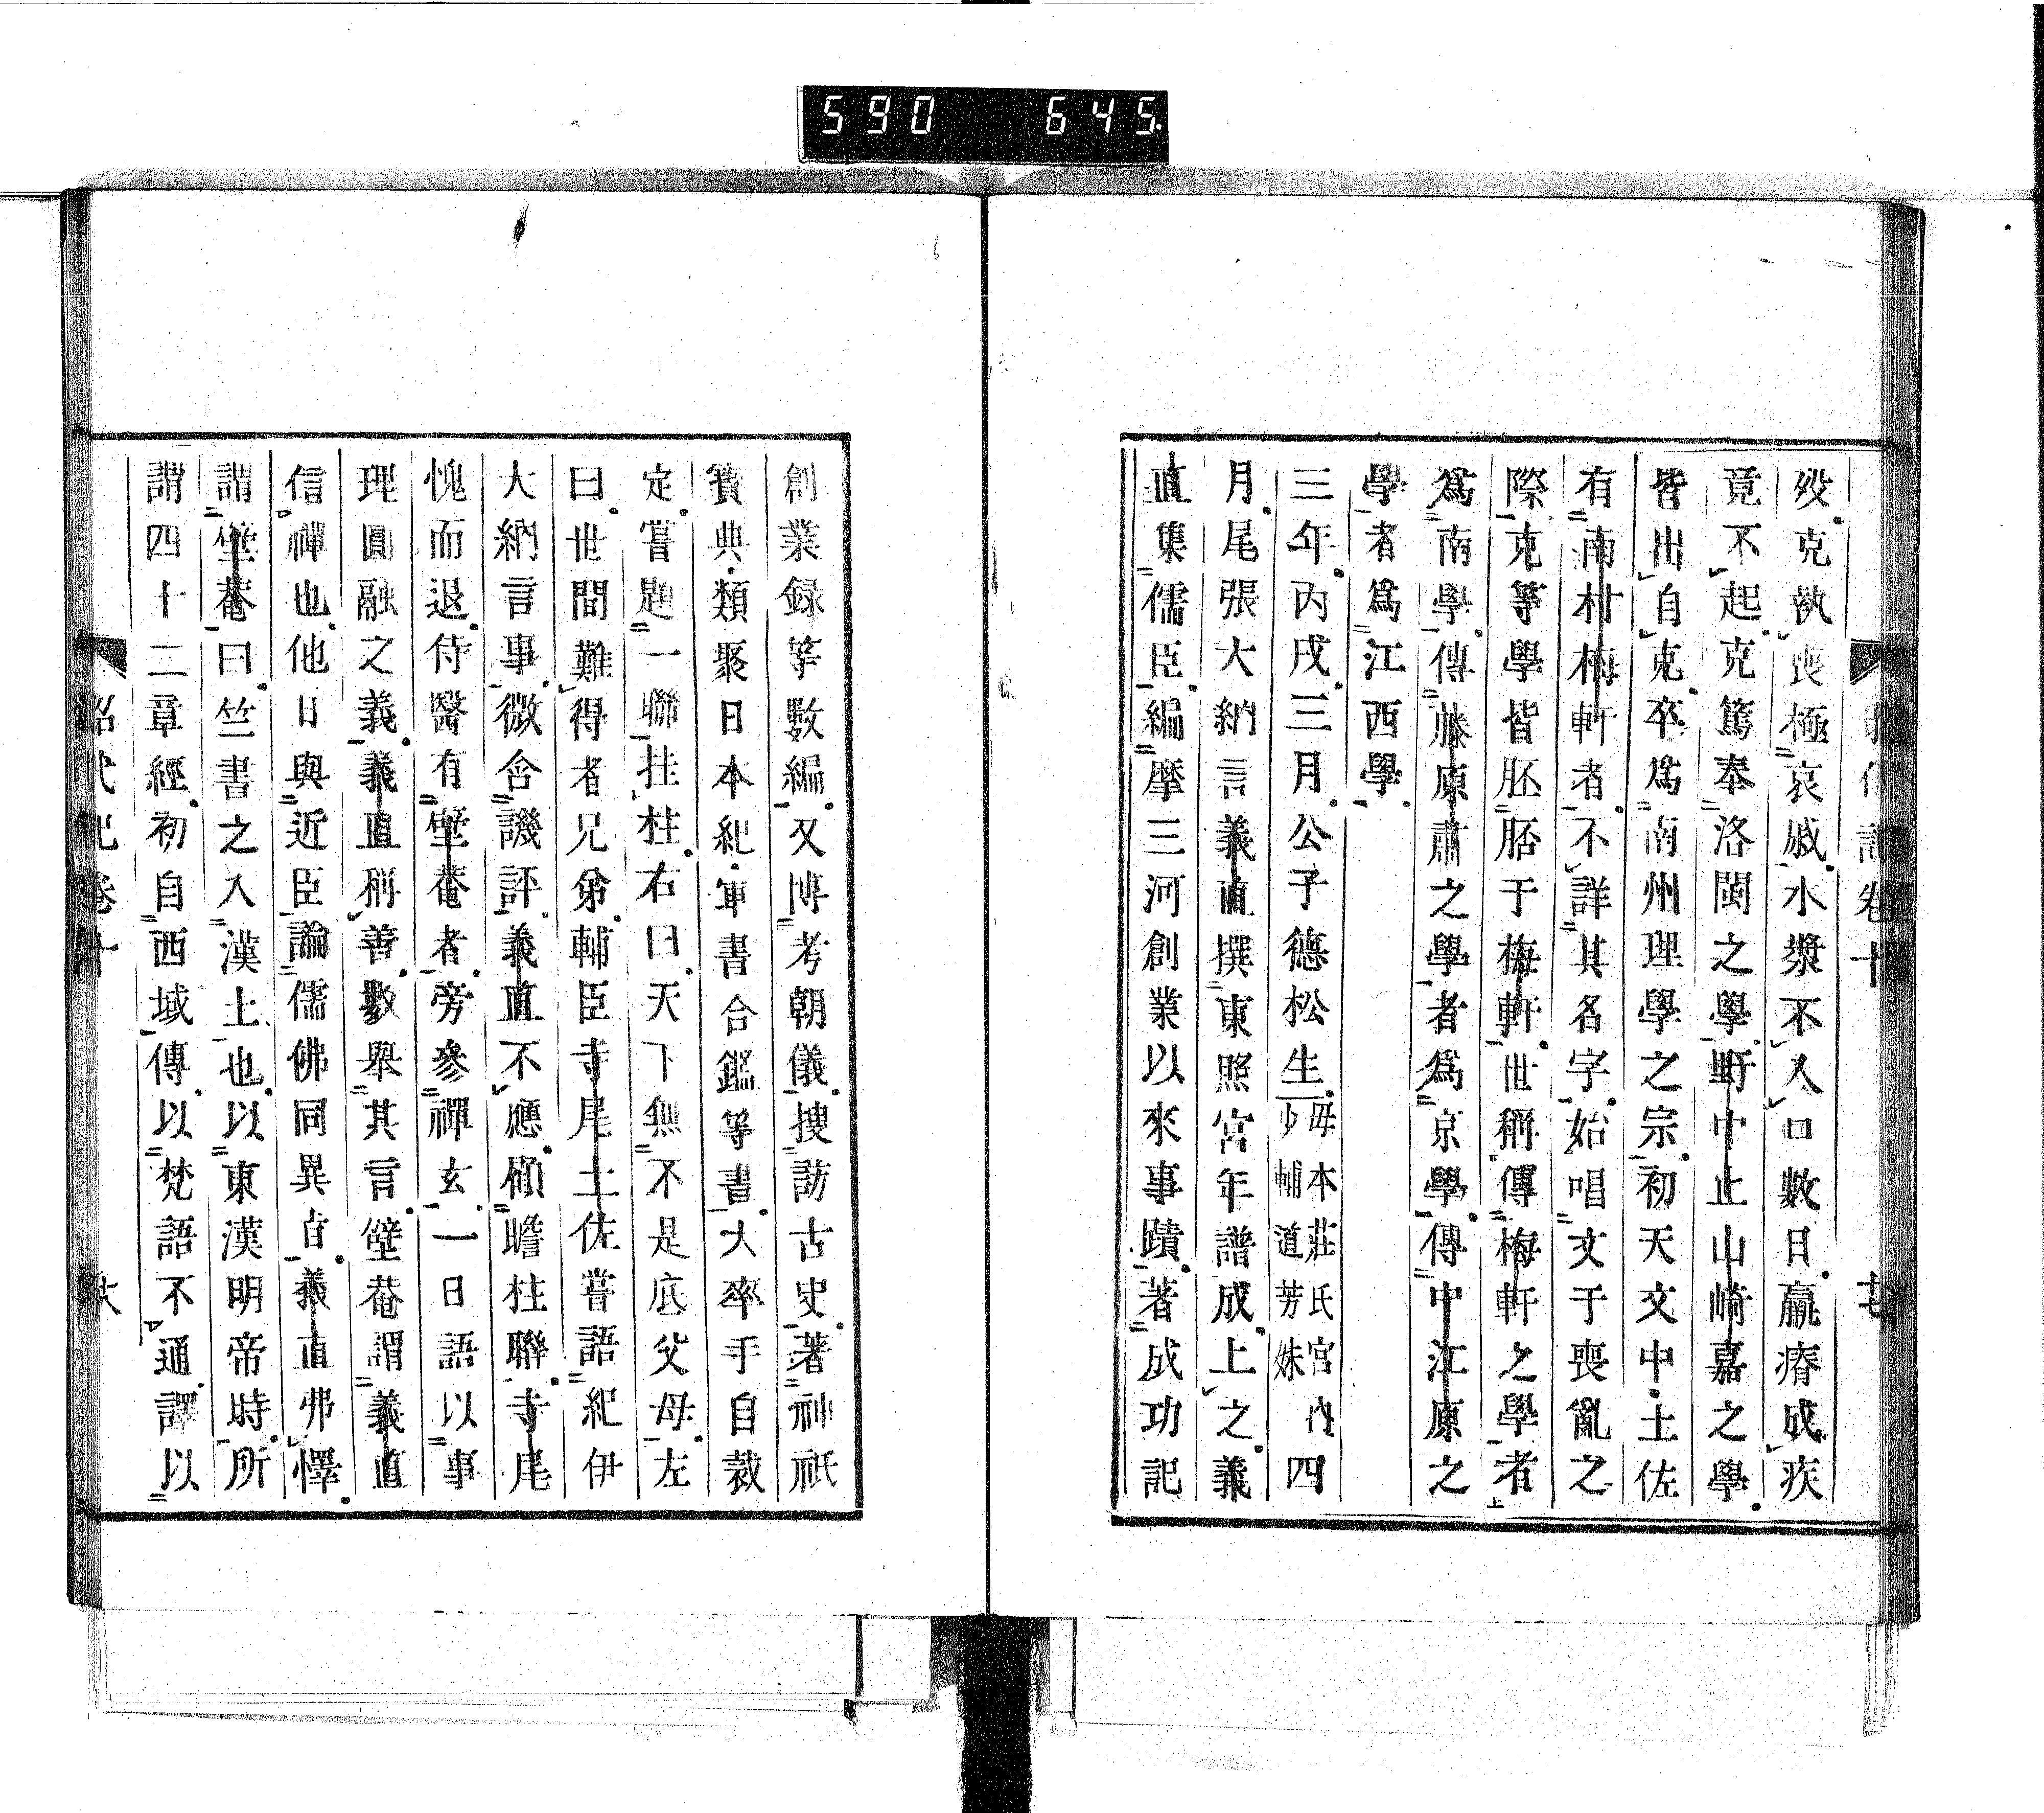 590 645
歿克執喪極哀戚水漿不入口數日羸瘠成疾
竟不起克篤奉洛閩之學野中止山崎嘉之學
皆出自克卒爲南州理學之宗初天文中土佐
有南村梅軒者不詳其名字始唱文于喪亂之
際克等學皆胚胎于梅軒世稱傳梅軒之學者
爲南學傳藤原肅之學者爲京學傳中江原之
學者爲江西學
三年丙戌三月公子德松生母本莊氏宮內少輔道芳妹四
月尾張大納言義直撰東照宮年譜成上之義
直集儒臣編摩三河創業以來事蹟著成功記
創業録等數編又博考朝儀搜訪古史著神祇
寶典類聚日本紀軍書合鑑等書大率手自裁
定嘗題一聯挂柱右曰天下無不是底父母左
曰世間難得者兄弟輔臣寺尾土佐嘗語紀伊
大納言事微含譏評義直不應顧瞻柱聯寺尾
愧而退侍醫有壁菴者旁參禪玄一日語以事
理圓融之義義直稱善數舉其言壁菴謂義直
信禪也他日與近臣論儒佛同異旨義直弗懌
謂壁菴曰竺書之入漢土也以東漢明帝時所
謂四十二章經初自西域傳以梵語不通譯以
卷十